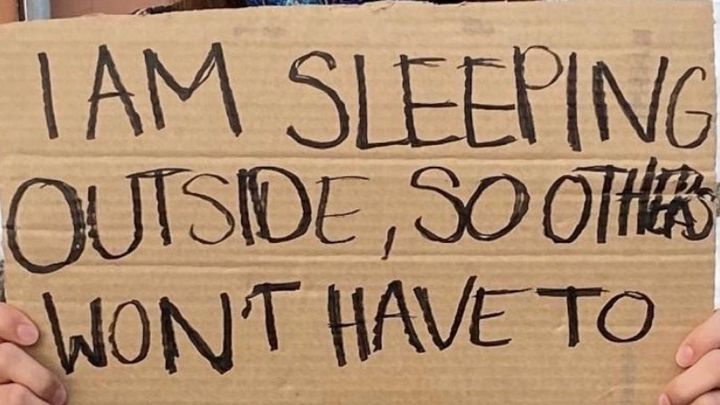 I AM SLEEPING
OUTSIDE, SO OTHERS
WON'T HAVE TO